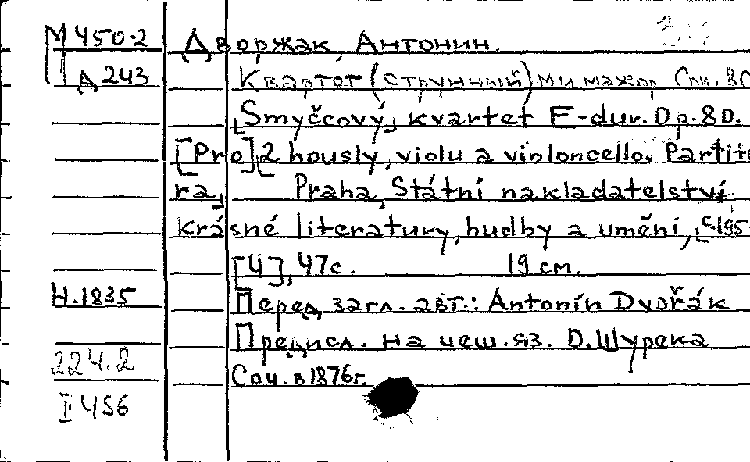 М450-2
Д243
Дворжак, Антонин.
Квартет (струнный) ми мажор Соч. 80
[Smyčcový] kvartet E-dur. Op. 80.
[Pro] 2 hously, violu a violoncello. Partitu
ra. Praha, Státní nakladatelství
krásné literatury, hudby a umění, [c. 195
[4], 47с. 19 см.
Н.1835
Перед загл. авт.: Antonín Dvořák
Предисл. на чеш. яз. О. Шурека
224.2
Соч. в 1876г.
II 456